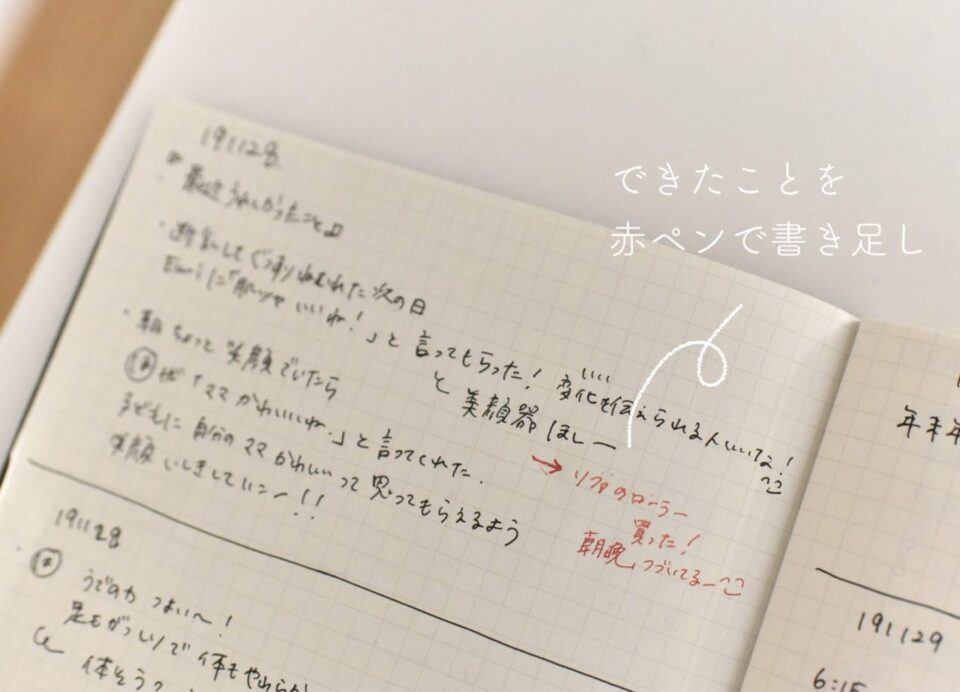 できたことを
赤ペンで書き足し
191128
最近うれしかったこと
・断乳してぐっすりねむれた次の日
Emiに「肌ツヤいいね!」と言ってもらった! 変化を伝えられる人いいな!
いい
と 美顔器ほしー
→リファのローラー
買った!
朝晩つづいてるー
・朝ちょっと笑顔でいたら
が「ママかわいいね。」と言ってくれた。
子どもに自分のママかわいいって思ってもらえるよう
笑顔いしきしていこー!!
191128
うでの力つよい〜!
足もがっしりで 体もやわらか
体そう?
年末年
191129
6:15